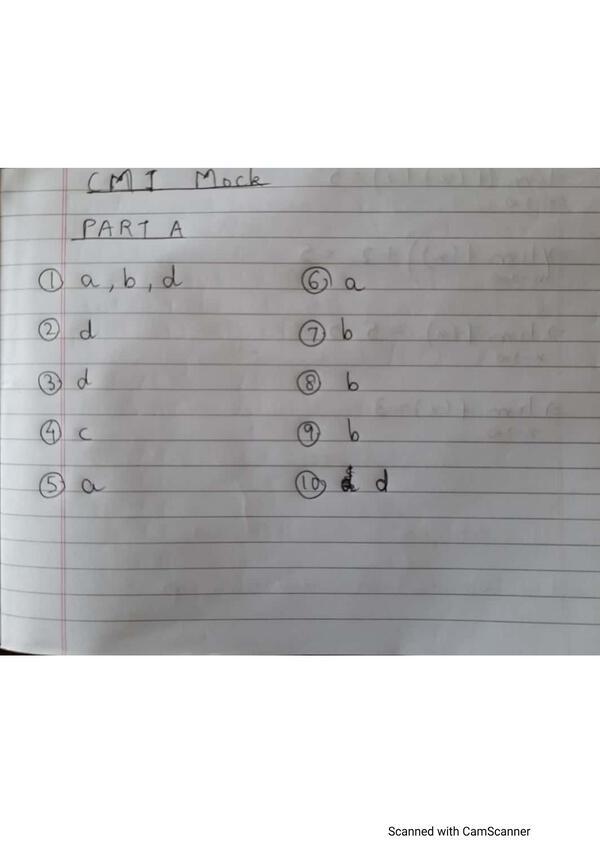 CMI Mock
PART A
① a, b, d
② d
③ d
④ c
⑤ a
⑥ a
⑦ b
⑧ b
⑨ b
⑩ d
Scanned with CamScanner